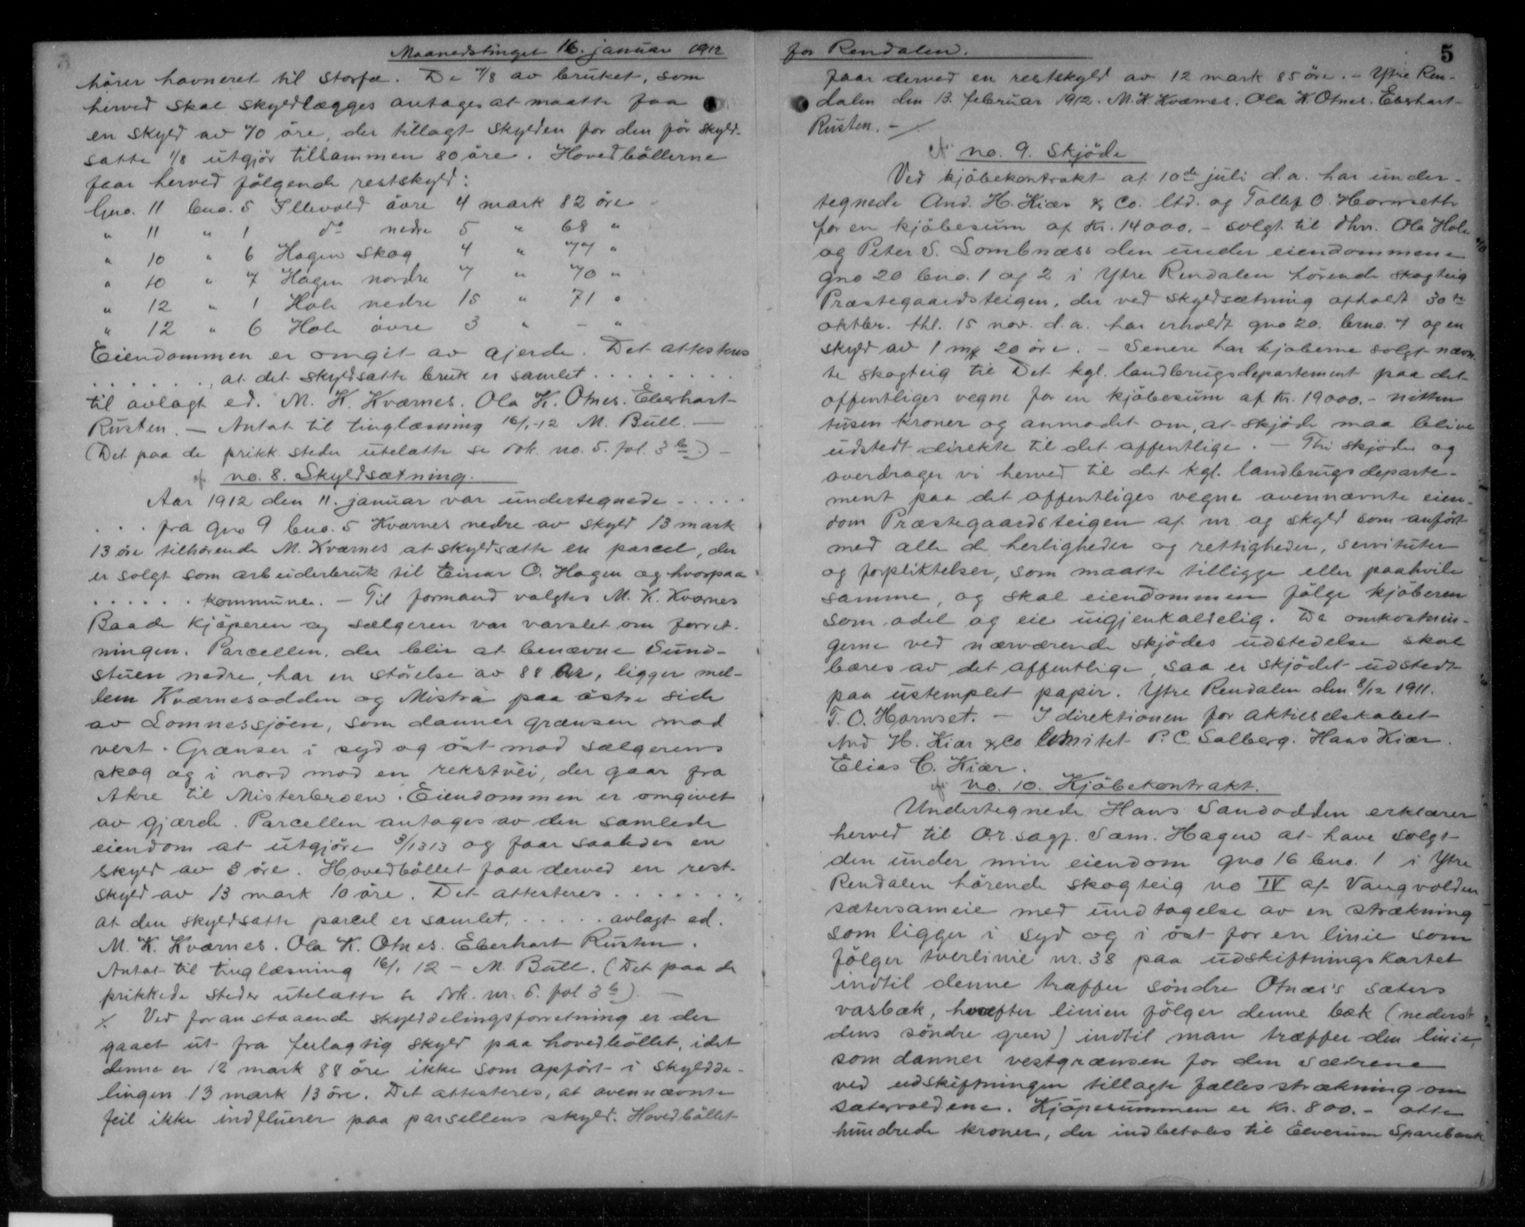 Maanedstinget 16. januar 1912
hører havneret til storfæ. De 7/8 av bruket, som
herved skal skyldlægges antages at maatte faa
en skyld av 70 øre, der tillagt skylden for den før skyld-
satte 1/8 utgjør tilsammen 80 øre. Hovedbøllerne
faar herved følgende restskyld:
Gno. 11 bno. 5 Illevold øvre 4 mark 82 øre
" 11 " 1 do nedre 5 " 68 "
" 10 " 6 Hagen skog 4 " 77 "
" 10 " 7 Hagen nordre 7 " 70 "
" 12 " 1 Hole nedre 15 " 71 "
" 12 " 6 Hole øvre 3 " - "
Eiendommen er omgit av gjerde. Det attesteres
. . . . . . ., at det skyldsatte bruk er samlet . . . . . . . .
til avlagt ed. M. K. Kværnes. Ola K. Otnes. Eberhart
Rusten. — Antat til tinglæsning 16/1-12 M. Bull. —
(Det paa de prikk. steder utelatte se dok. no. 5. fol. 3 b.) —
no. 8. Skyldsætning.
Aar 1912 den 11. januar var undertegnede - . . . .
. . . fra gno 9 bno. 5 Kværnes nedre av skyld 13 mark
13 øre tilhørende M. Kværnes at skyldsætte en parcel, der
er solgt som arbeiderbruk til Einar O. Hagen og hvorpaa
. . . . . . kommune. — Til formand valgtes M. K. Kværnes
Baade kjøperen og sælgeren var varslet om forret-
ningen. Parcellen, der blir at benævne Sund-
stuen nedre, har en størelse av 88 ar, ligger mel-
lem Kværnesodden og Mistra paa østre side
av Lomnessjøen, som danner grænsen mod
vest. Grænser i syd og øst mod sælgerens
skog og i nord mod en rekstvei, der gaar fra
Akre til Misterbroen. Eiendommen er omgivet
av gjærde. Parcellen antages av den samlede
eiendom at utgjøre 3/1313 og faar saaledes en
skyld av 3 øre. Hovedbøllet faar derved en rest-
skyld av 13 mark 10 øre. Det attesteres . . . . . . .,
at den skyldsatte parcel er samlet, . . . . . avlagt ed.
M. K. Kværnes. Ola K. Otnes. Eberhart Rusten.
Antat til tinglæsning 16/1 12 - M. Bull. (Det paa de
prikkede steder utelatte se dok. nr. 5. fol 3 b) —
x Ved foranstaaende skylddelingsforretning er der
gaaet ut fra feilagtig skyld paa hovedbøllet, idet
denne er 12 mark 88 øre ikke som anført i skyldde-
lingen 13 mark 13 øre. Det attesteres, at ovennævnte
feil ikke indfluerer paa parsellens skyld. Hovedbøllet
for Rendalen.
5
faar derved en restskyld av 12 mark 85 øre. — Ytre Ren-
dalen den 13. februar 1912. M. K. Kværnes. Ola K. Otnes. Eberhart
Rusten. —
no. 9. Skjøde
Ved kjøbekontrakt af 10de juli d.a. har under-
tegnede And. H. Kiær & Co. ltd. og Tollef O. Hornseth
for en kjøbesum af kr. 14000.- solgt til dhrr. Ola Hole
og Peter S. Lombnæss den under eiendommene
gno 20 bno. 1 og 2 i Ytre Rendalen hørende skogteig
Præstegaardsteigen, der ved skyldsætning afholdt 30te
oktbr. thl. 15 nov. d.a. har erholdt gno 20. bno. 7 og en
skyld av 1 mk 20 øre. — Senere har kjøberne solgt nævn-
te skogteig til Det kgl. landbrugsdepartement paa det
offentliges vegne for en kjøbesum af kr. 19000.- nitten
tusen kroner og anmodet om, at skjøde maa blive
udstedt direkte til det offentlige. — Thi skjøder og
overdrager vi herved til det kgl. landbrugsdeparte-
ment paa det offentliges vegne ovennævnte eien-
dom Præstegaardsteigen af nr og skyld som anført
med alle de herligheder og rettigheder, servituter
og forpliktelser, som maatte tilligge eller paahvile
samme, og skal eiendommen følge kjøberen
som odel og eie uigjenkaldelig. Da omkostnin-
gerne ved nærværende skjødes udstedelse skal
bæres av det offentlige, saa er skjødet udstedt
paa ustemplet papir. Ytre Rendalen den 8/12 1911.
T. O. Hornset. — I direktionen for aktieselskabet
And H. Kiær & Co limitet P. C. Solberg. Hans Kiær.
Elias C. Kiær.
no. 10. Kjøbekontrakt.
Undertegnede Hans Sandodden erklærer
herved til O.r. sagf. Sam. Hagen at have solgt
den under min eiendom gno 16 bno. 1 i Ytre
Rendalen hørende skogteig no IV af Vangvolden
sætersameie med undtagelse av en strækning
som ligger i syd og i øst for en linie som
følger tverlinie nr. 38 paa udskiftningskartet
indtil denne træffer søndre Otnæs's sæters
vasbæk, hvorefter linien følger denne bæk (neder-
dens søndre gren) indtil man træffer den linie,
som danner vestgrænsen for den sætrene
ved udskiftningen tillagte fælles strækning om
sætervoldene. Kjøpesummen er kr. 800.- otte
hundrede kroner, der indbetales til Elverum Sparebank